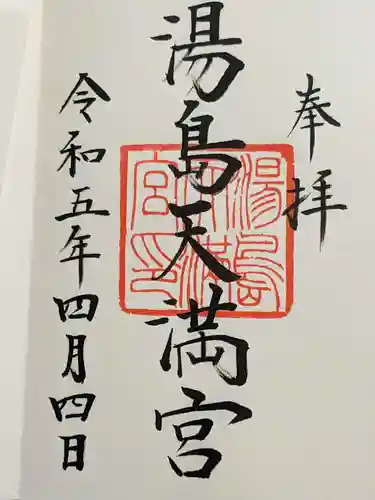 奉拝
湯島天満宮
湯島
天満
宮印
令和五年四月四日